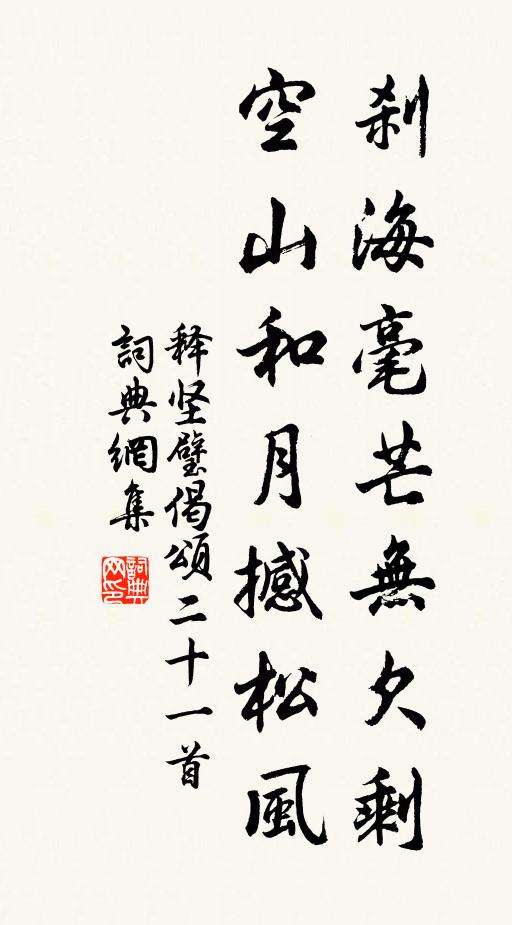 刹海毫芒無欠剩
空山和月撼松風
释坚璧偈頌二十一首
詞典網集
詞典网印